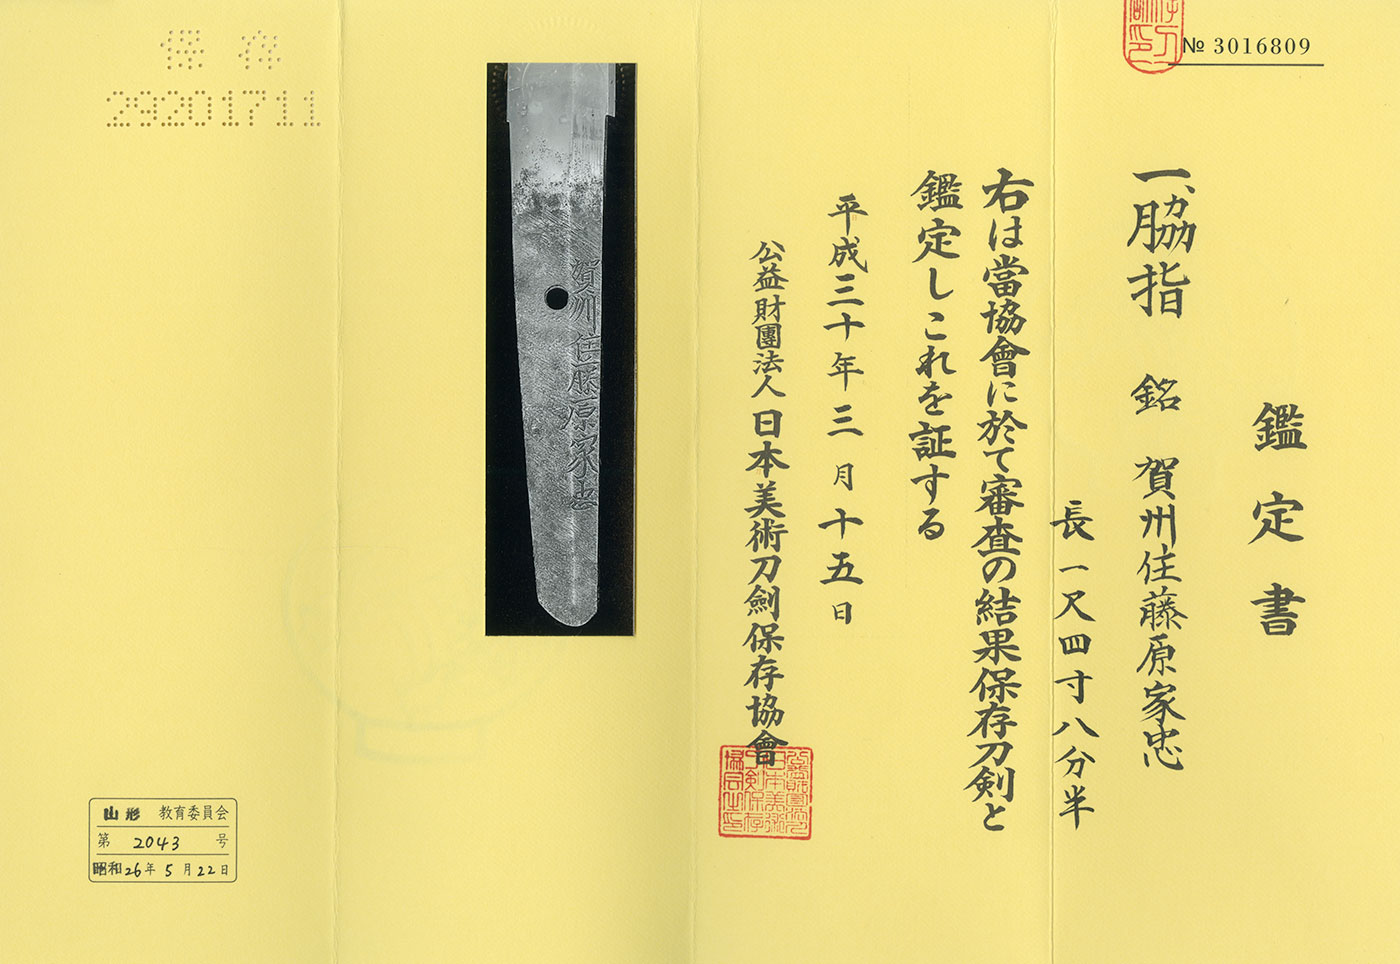 № 3016809
鑑定書
一、脇指 銘 賀州住藤原家忠
長一尺四寸八分半
右は當協會に於て審査の結果保存刀剣と
鑑定しこれを証する
平成三十年三月十五日
公益財團法人日本美術刀劍保存協會
賀州住藤原家忠
保存
29201711
山形 教育委員会
第 2043 号
昭和26年5月22日